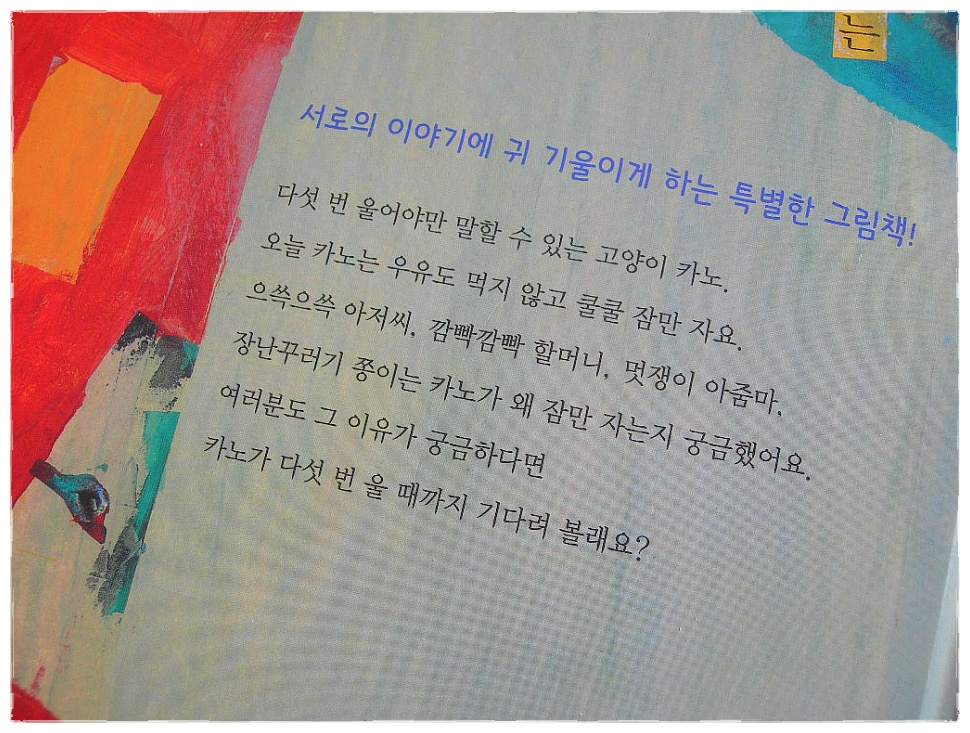 는
서로의 이야기에 귀 기울이게 하는 특별한 그림책!
다섯 번 울어야만 말할 수 있는 고양이 카노.
오늘 카노는 우유도 먹지 않고 쿨쿨 잠만 자요.
으쓱으쓱 아저씨, 깜빡깜빡 할머니, 멋쟁이 아줌마,
장난꾸러기 쫑이는 카노가 왜 잠만 자는지 궁금했어요.
여러분도 그 이유가 궁금하다면
카노가 다섯 번 울 때까지 기다려 볼래요?